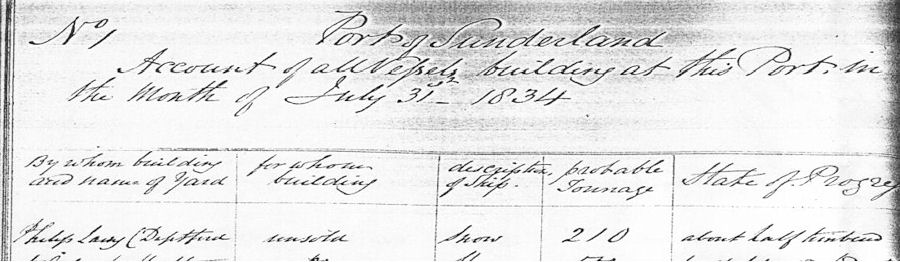 No 1 Port of Sunderland
Account of all Vessels building at this Port in
the Month of July 31st 1834
By whom building and name of Yard
for whom building
description of Ship.
probable Tonnage
State of Progres
Philip Laing (Deptford unsold Snow 210 about half timbered